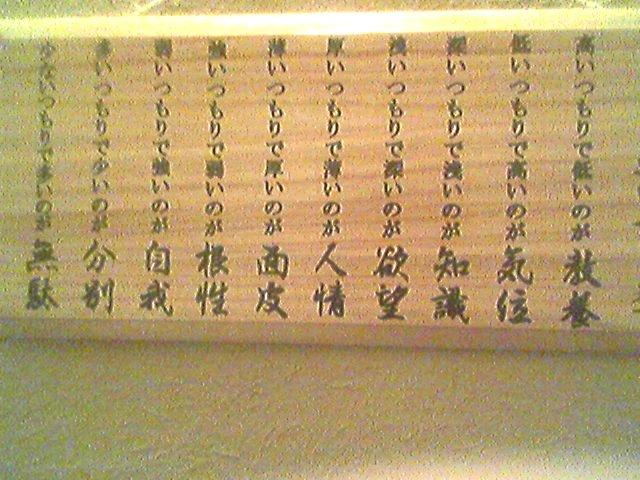 高いつもりで低いのが教養
低いつもりで高いのが気位
深いつもりで浅いのが知識
浅いつもりで深いのが欲望
厚いつもりで薄いのが人情
薄いつもりで厚いのが面皮
強いつもりで弱いのが根性
弱いつもりで強いのが自我
多いつもりで少いのが分別
少ないつもりで多いのが無駄